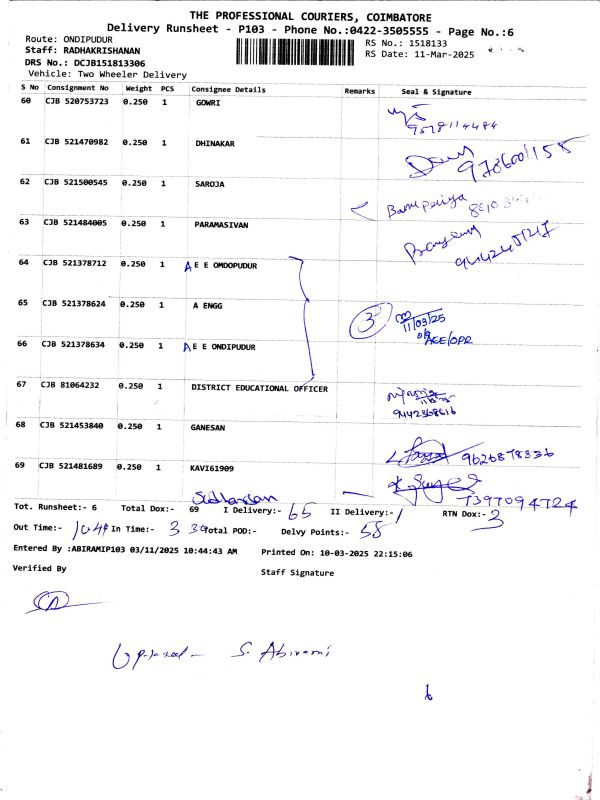 THE PROFESSIONAL COURIERS, COIMBATORE
Delivery Runsheet - P103 - Phone No.:0422-3505555 - Page No.:6
Route: ONDIPUDUR
Staff: RADHAKRISHANAN
DRS No.: DCJB151813306
Vehicle: Two Wheeler Delivery
RS No.: 1518133
RS Date: 11-Mar-2025
S No Consignment No Weight PCS Consignee Details Remarks Seal & Signature
60 CJB 520753723 0.250 1 GOWRI
61 CJB 521470982 0.250 1 DHINAKAR
9786001158
62 CJB 521500545 0.250 1 SAROJA
63 CJB 521484005 0.250 1 PARAMASIVAN
64 CJB 521378712 0.250 1 A E E OMDOPUDUR
65 CJB 521378624 0.250 1 A ENGG
3
11/03/25
AEE/OPR
66 CJB 521378634 0.250 1 A E E ONDIPUDUR
67 CJB 81064232 0.250 1 DISTRICT EDUCATIONAL OFFICER
9442368616
68 CJB 521453840 0.250 1 GANESAN
9626878336
69 CJB 521481689 0.250 1 KAVI61909
7397094724
Tot. Runsheet:- 6 Total Dox:- 69 I Delivery:- 65 II Delivery:- 1 RTN Dox:- 3
Out Time:- 104 In Time:- 3 30 Total POD:- Delvy Points:- 58
Entered By :ABIRAMIP103 03/11/2025 10:44:43 AM Printed On: 10-03-2025 22:15:06
Verified By Staff Signature
S. Abirami